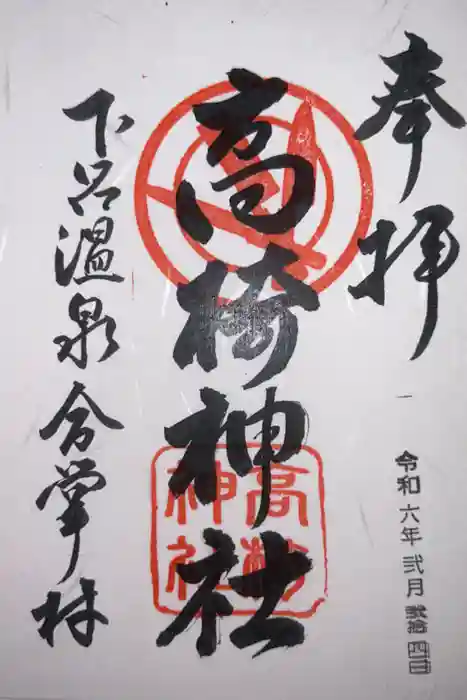 奉拝
高椅神社
高椅
神社
下呂温泉合掌村
令和六年弐月弐拾四日